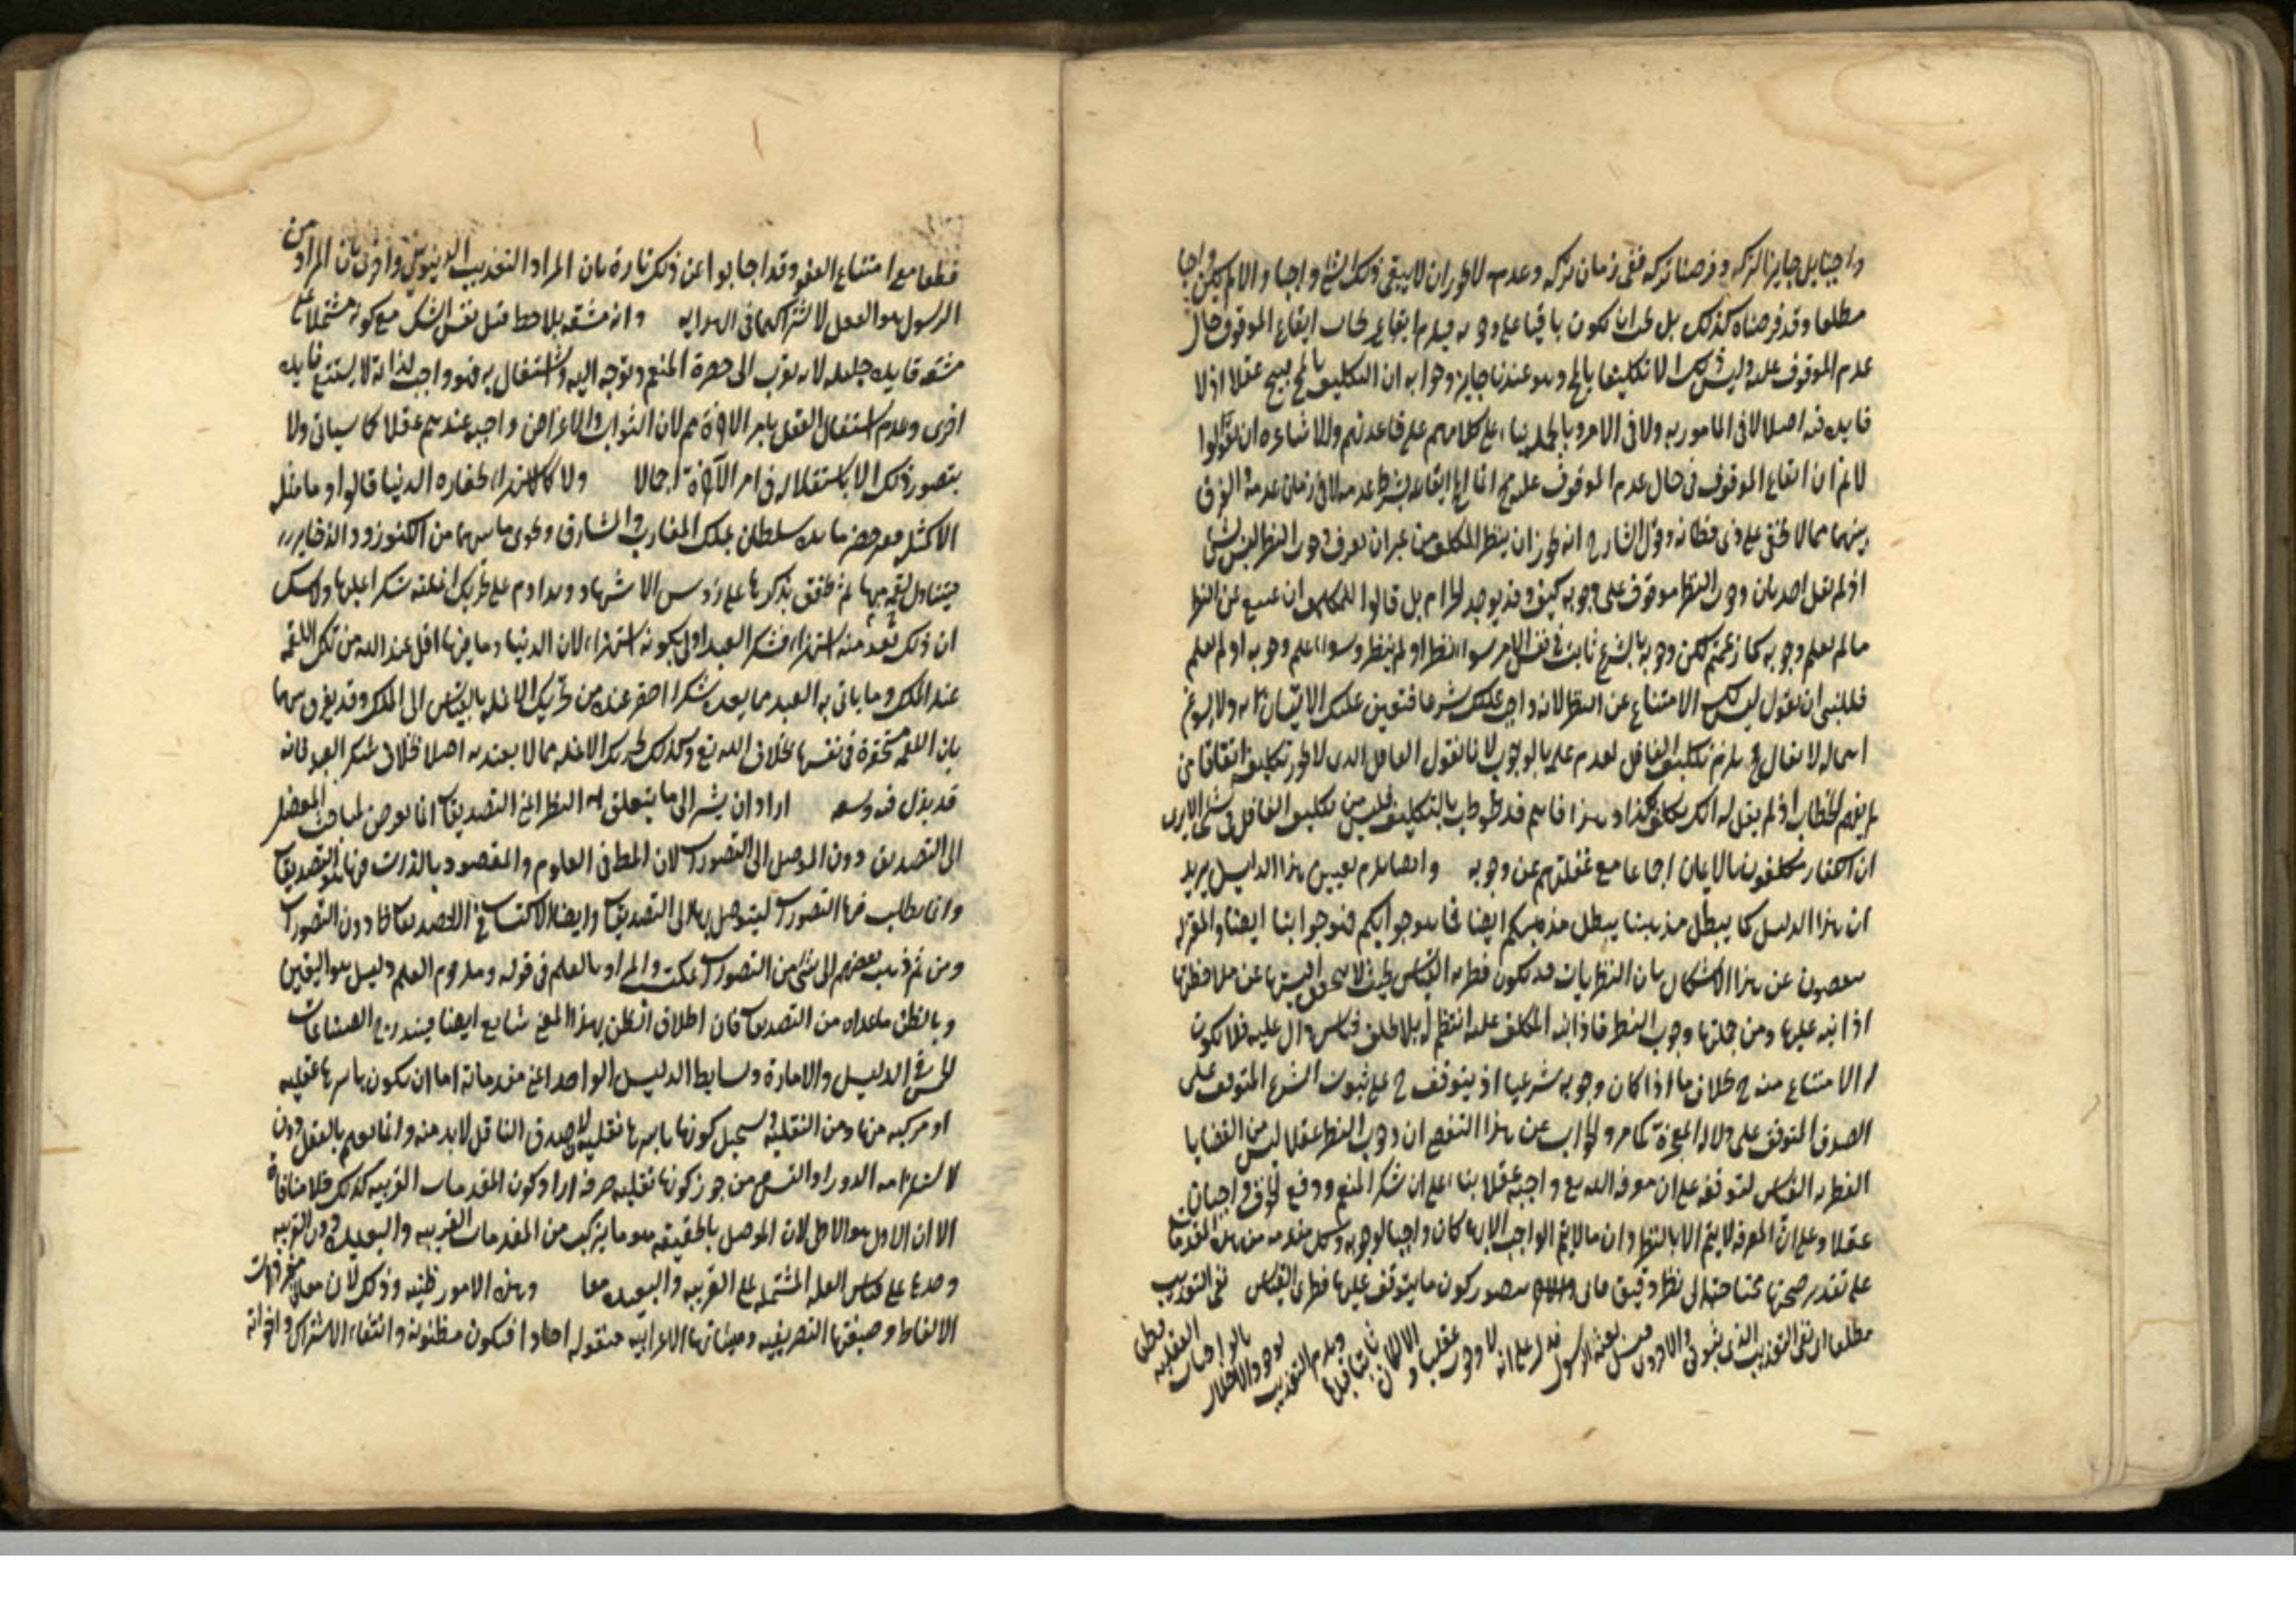 واجبا بل جايز الترك وفرضنا تركه ففى زمان تركه وعدمه لا يجوز ان لا يبقى ذلك الشئ واجبا والا لم يكن واجبا
مطلقا وقد فرضناه كذلك بل يجب ان يكون باقيا على وجوبه فيلزم ايجاب ايقاع الموقوف حال
عدم الموقوف عليه وليس ذلك الا تكليفا بالمح وهو عندنا جايز وجوابه ان التكليف بالمح قبيح عقلا اذ لا
فايده فيه اصلا لا فى المامور به ولا فى الامر وبالجملة بناء على كلامهم على قاعدتهم وللاشاعره ان يقولوا
لانم ان ايقاع الموقوف فى حال عدم الموقوف عليه مح انما المح ايقاعه بشرط عدمه لا فى زمان عدمه والفرق
بينهما مما لا يخفى على ذى فطانه وقول الشارح انه يجوز ان ينظر المكلف من غير ان يعرف وجوب النظر ليس بشئ
اذ لم يقل احد بان وجوب النظر موقوف على وجوبه كيف وقد يوجد الزام بل قالوا للمكلف ان يمتنع عن النظر
ما لم يعلم وجوبه كما زعمتم لكن وجوبه بالشرع ثابت فى نفس الامر سواء نظر او لم ينظر وسواء علم وجوبه او لم يعلم
فللنبى ان يقول ليس لك الامتناع عن النظر لانه واجب عليك شرعا فتعين عليك الاتيان به ولا يسوغ
امهاله لا يقال ح يلزم تكليف الغافل لعدم علمه بالوجوب لانا نقول الغافل الذى لا يجوز تكليفه اتفاقا من
لم يفهم الخطاب او لم يقل له انك مكلف بكذا وهذا فاهم قد خوطب بالتكليف فليس من تكليف الغافل فى شئ الا يرى
ان الكفار مكلفون بالايمان اجماعا مع غفلتهم عن وجوبه وايضا يلزم تعيين هذا الدليل يريد
ان هذا الدليل كما يبطل مذهبنا يبطل مذهبكم ايضا فما هو جوابكم فهو جوابنا ايضا والمعتزله
عن هذا الاشكال بان النظريات قد يكون فطرية القياس بحيث لا عن ملاحظتها
اذا نبه عليها ومن جملتها وجوب النظر فاذا نبه المكلف عليه انتظم له بلا تكلف قياس دال عليه فلا يكون
له الامتناع منه ح بخلاف ما اذا كان وجوبه شرعيا اذ يتوقف ح على ثبوت الشرع المتوقف على
الصدق المتوقف على دلالة المعجزة كما مر والجواب عن هذا ان وجوب النظر عقلا ليس من القضايا
الفطريه القياس لتوقفه على ان معرفة الله تع واجبة عقلا بناء على ان شكر المنعم ودفع الخوف واجبان
عقلا وعلى ان المعرفه لا يتم الا بالنظر وان ما لا يتم الواجب الا به كان واجبا لوجوبه وكل مقدمه من هذه المقدمات
على تقدير صحتها محتاجة الى نظر دقيق فانى يتصور كون ما يتوقف عليها فطرى القياس نفى التعذيب
مطلقا اى نفى التعذيب الدنيوى والاخروى قبل بعثة الرسول فدل على انه لا وجوب عقليا والا لكان ثابتا قبلها ويلزم التعذيب لوجود الاخلال بالواجبات العقليه
قطعا مع امتناع العفو وقد اجابوا عن ذلك تارة بان المراد التعذيب الدنيوى واخرى بان المراد من
الرسول هو العقل لاشتراكهما فى الهدايه وانه مشقه بلا حظ قيل نفس الشكر مع كونه مشتملا على
مشقة فايده جليله لانه تقرب الى حضرة المنعم وتوجه اليه واشتغال به فهو واجب لذاته لا يستتبع فايده
اخرى وعدم استقلال العقل بامر الاخرة مم لان الثواب والاعراض واجبه عندهم عقلا كما سياتى ولا
يتصور ذلك الا باستقلاله فى امر الآخرة اجمالا ولا كالاستهزاء لحقاره الدنيا قالوا وما مثله
الا كمثل فقير حضر مايده سلطان يملك المغارب والمشارق ويحوى ما بينهما من الكنوز والذخاير
فيتناول لقمه منها ثم طفق يذكرها على رؤس الاشهاد ويداوم على تحريك انملته شكرا عليها ولاشك
ان ذلك يعد منه استهزاء فشكر العبد اولى بكونه استهزاء لان الدنيا وما فيها اقل عند الله من تلك اللقمه
عند الملك وما ياتى به العبد مما يعد شكرا احقر عنده من تحريك الانمله بالقياس الى الملك وقد يفرق بينهما
بان اللقمه محقرة فى نفسها بخلاف الله تع وكذلك تحريك الانمله مما لا يعتد به اصلا بخلاف شكر العبد فانه
قد بذل فيه وسعه اراد ان يشير الى ما يتعلق به النظر اعنى التصديقات انما تعرض لمباحث الموصل
الى التصديق دون الموصل الى التصورات لان المط فى العلوم والمقصود بالذات منها هو التصديقات
وانما يطلب فيها التصورات ليتوصل بها الى التصديقات وايضا الاكتساب فى التصديقات دون التصورات
ومن ثم ذهب بعضهم الى ان شئ من التصورات لا يكتسب والمراد بالعلم فى قوله وملزوم العلم دليل هو اليقين
وبالظن ما عداه من التصديقات فان اطلاق الظن بهذا المعنى شايع ايضا فيندرج الصناعات
الخمس فى الدليل والامارة وبسايط الدليل الواحد اعنى مقدماته اما ان يكون باسرها عقليه
او مركبه منها ومن النقليه ويستحيل كونها باسرها نقليه لان صدق الناقل لا بد منه وانما يعلم بالعقل دون
لاستلزامه الدور او التس ومن جوز كونها نقليه صرفه اراد كون المقدمات القريبه كذلك فلا منافاة
الا ان الاول هو الاولى لان الموصل بالحقيقه هو ما يتركب من المقدمات القريبه والبعيده دون القريبه
وحدها على قياس العله المشتمله على القريبه والبعيده معا وهذه الامور ظنيه وذلك لان معانى مفردات
الالفاظ وصيغتها التصريفيه وهيئاتها الاعرابيه منقوله احادا فيكون مظنونه وانتفاء الاشتراك واخواته